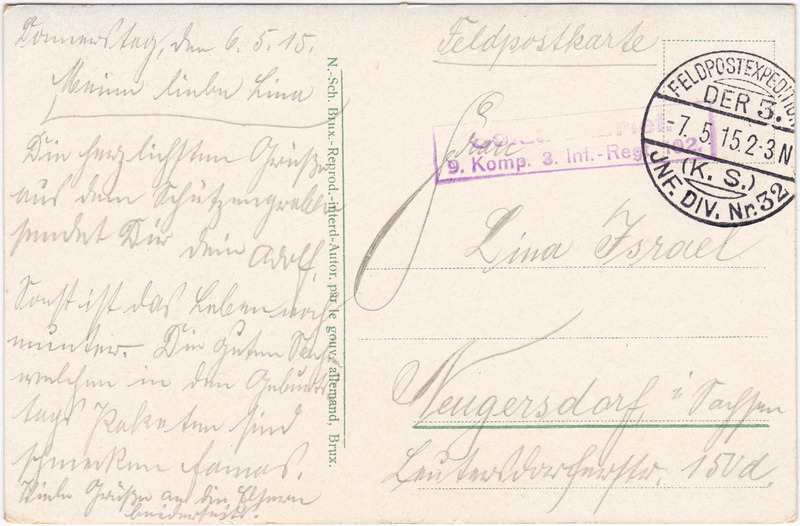 Donnerstag, den 6.5.15.
Meine liebe Lina
Die herzlichsten Grüße
aus dem Schützengraben
sendet Dir dein Adolf.
Sonst ist das Leben noch
munter. Die guten
welchen in den Geburts
tags Paketen sind
schmecken famos.
Viele Grüße an die Eltern
beiderseits.
N.-Sch. Brux.-Reprod.-interd-Autor. par le gouv. allemand, Brux.
Feldpostkarte
FELDPOSTEXPEDITION
DER 3.
-7.5.15.2-3N
(K. S.)
JNF. DIV. Nr. 32
9. Komp. 3. Inf.-Reg. 102.
Frau
Lina Israel
Neugersdorf, i Sachsen
Leutersdorferstr. 150d.